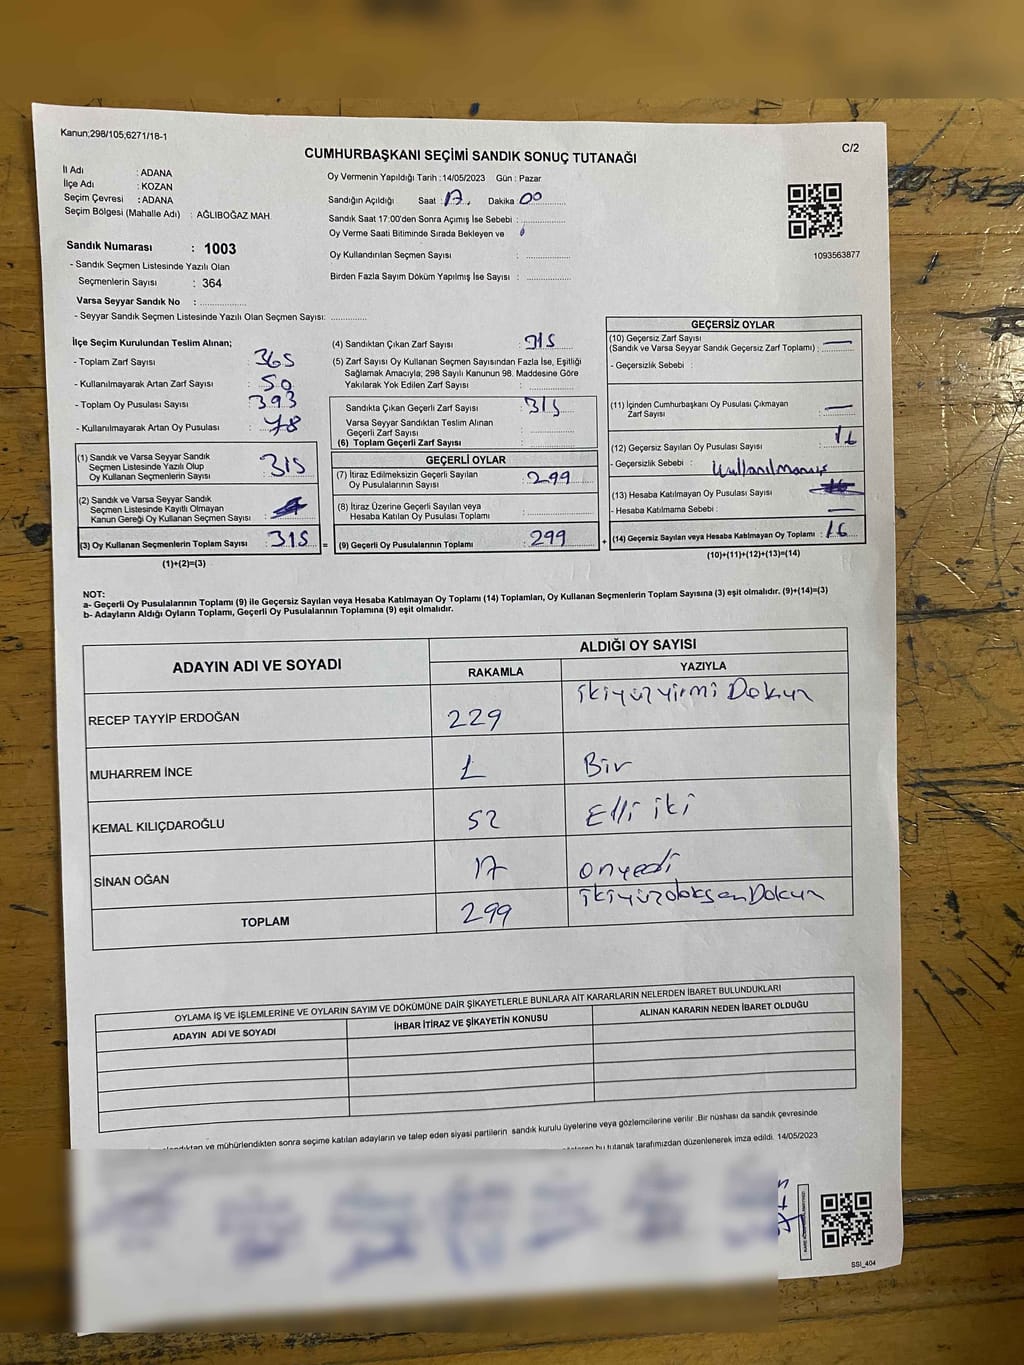 Kanun;298/105,6271/18-1
C/2
CUMHURBAŞKANI SEÇİMİ SANDIK SONUÇ TUTANAĞI
İl Adı : ADANA
İlçe Adı : KOZAN
Seçim Çevresi : ADANA
Seçim Bölgesi (Mahalle Adı) : AĞLIBOĞAZ MAH.
Oy Vermenin Yapıldığı Tarih :14/05/2023 Gün : Pazar
Sandığın Açıldığı Saat : 17. Dakika 00
Sandık Saat 17:00'den Sonra Açımış İse Sebebi :
Oy Verme Saati Bitiminde Sırada Bekleyen ve
Oy Kullandırılan Seçmen Sayısı :
Birden Fazla Sayım Döküm Yapılmış İse Sayısı :
1093563877
Sandık Numarası : 1003
- Sandık Seçmen Listesinde Yazılı Olan
Seçmenlerin Sayısı : 364
Varsa Seyyar Sandık No :
- Seyyar Sandık Seçmen Listesinde Yazılı Olan Seçmen Sayısı:
İlçe Seçim Kurulundan Teslim Alınan;
- Toplam Zarf Sayısı : 365
- Kullanılmayarak Artan Zarf Sayısı : 50
- Toplam Oy Pusulası Sayısı : 393
- Kullanılmayarak Artan Oy Pusulası : 78
(1) Sandık ve Varsa Seyyar Sandık
Seçmen Listesinde Yazılı Olup
Oy Kullanan Seçmenlerin Sayısı : 315
(2) Sandık ve Varsa Seyyar Sandık
Seçmen Listesinde Kayıtlı Olmayan
Kanun Gereği Oy Kullanan Seçmen Sayısı :
(3) Oy Kullanan Seçmenlerin Toplam Sayısı : 315 =
(1)+(2)=(3)
(4) Sandıktan Çıkan Zarf Sayısı : 315
(5) Zarf Sayısı Oy Kullanan Seçmen Sayısından Fazla İse, Eşitliği
Sağlamak Amacıyla; 298 Sayılı Kanunun 98. Maddesine Göre
Yakılarak Yok Edilen Zarf Sayısı :
Sandıkta Çıkan Geçerli Zarf Sayısı : 315
Varsa Seyyar Sandıktan Teslim Alınan
Geçerli Zarf Sayısı :
(6) Toplam Geçerli Zarf Sayısı :
GEÇERLİ OYLAR
(7) İtiraz Edilmeksizin Geçerli Sayılan
Oy Pusulalarının Sayısı : 299
(8) İtiraz Üzerine Geçerli Sayılan veya
Hesaba Katılan Oy Pusulası Toplamı :
(9) Geçerli Oy Pusulalarının Toplamı : 299 +
GEÇERSİZ OYLAR
(10) Geçersiz Zarf Sayısı
(Sandık ve Varsa Seyyar Sandık Geçersiz Zarf Toplamı) : —
- Geçersizlik Sebebi :
(11) İçinden Cumhurbaşkanı Oy Pusulası Çıkmayan
Zarf Sayısı : —
(12) Geçersiz Sayılan Oy Pusulası Sayısı :
- Geçersizlik Sebebi : Kullanılmamış
(13) Hesaba Katılmayan Oy Pusulası Sayısı :
- Hesaba Katılmama Sebebi : —
(14) Geçersiz Sayılan veya Hesaba Katılmayan Oy Toplamı : 16
(10)+(11)+(12)+(13)=(14)
NOT:
a- Geçerli Oy Pusulalarının Toplamı (9) ile Geçersiz Sayılan veya Hesaba Katılmayan Oy Toplamı (14) Toplamları, Oy Kullanan Seçmenlerin Toplam Sayısına (3) eşit olmalıdır. (9)+(14)=(3)
b- Adayların Aldığı Oyların Toplamı, Geçerli Oy Pusulalarının Toplamına (9) eşit olmalıdır.
ADAYIN ADI VE SOYADI
ALDIĞI OY SAYISI
RAKAMLA YAZIYLA
RECEP TAYYİP ERDOĞAN 229 ikiyüzyirmi Dokuz
MUHARREM İNCE 1 Bir
KEMAL KILIÇDAROĞLU 52 Elli iki
SİNAN OĞAN 17 onyedi
TOPLAM 299 ikiyüzdoksan Dokuz
OYLAMA İŞ VE İŞLEMLERİNE VE OYLARIN SAYIM VE DÖKÜMÜNE DAİR ŞİKAYETLERLE BUNLARA AİT KARARLARIN NELERDEN İBARET BULUNDUKLARI
ADAYIN ADI VE SOYADI İHBAR İTİRAZ VE ŞİKAYETİN KONUSU ALINAN KARARIN NEDEN İBARET OLDUĞU
ve mühürlendikten sonra seçime katılan adayların ve talep eden siyasi partilerin sandık kurulu üyelerine veya gözlemcilerine verilir .Bir nüshası da sandık çevresinde
bu tutanak tarafımızdan düzenlenerek imza edildi. 14/05/2023
SSI_404